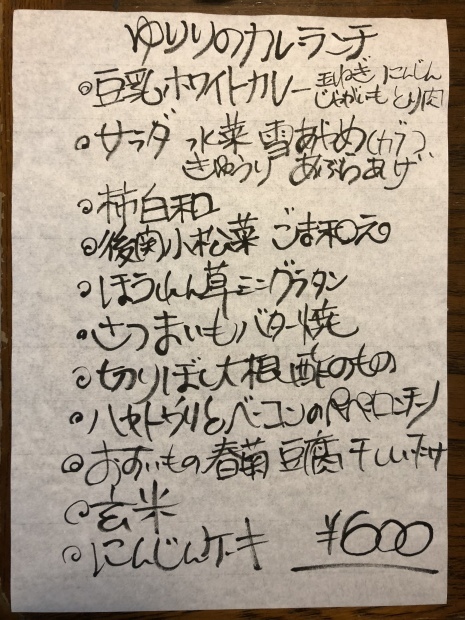 ゆりりのカレーランチ
◎豆乳ホワイトカレー 玉ねぎ にんじん
じゃがいも とり肉
◎サラダ 水菜 雪あやめ(カブ)
きゅうり あぶらあげ
◎柿白和
◎後関小松菜 ごま和え
◎ほうれん草ミニグラタン
◎さつまいもバター焼
◎切りぼし大根酢のもの
◎ハヤトウリとベーコンのペペロンチーノ
◎おすいもの 春菊 豆腐 干しいたけ
◎玄米
◎にんじんケーキ ¥600